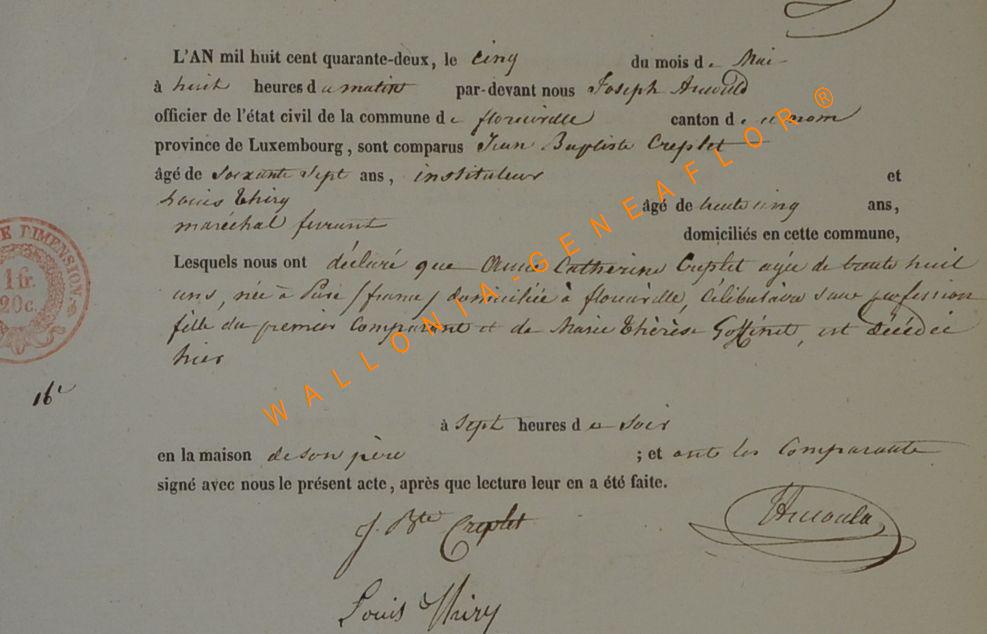 L'AN mil huit cent quarante-deux, le cinq du mois de Mai
à huit heures du matin par-devant nous Joseph Arnould
officier de l'état civil de la commune de florenville canton de ce nom
province de Luxembourg, sont comparus Jean Baptiste Creplet
âgé de soixante sept ans, instituteur et
Louis Thiry âgé de trente cinq ans,
maréchal ferrant domiciliés en cette commune,
Lesquels nous ont déclaré que Anne Catherine Creplet agée de trente huit
ans, née à Puré (france) domiciliée à florenville, Célibataire sans profession
fille du premier Comparant et de Marie Thérèse Goffinet, est décédée
hier
16e
à sept heures du soir
en la maison de son père ; et ont les Comparants
signé avec nous le présent acte, après que lecture leur en a été faite.
J. Bte Creplet
Arnould
Louis Thiry
E DIMENSION
1 fr.
20 c.
WALLONIA-GENEAFLOR®